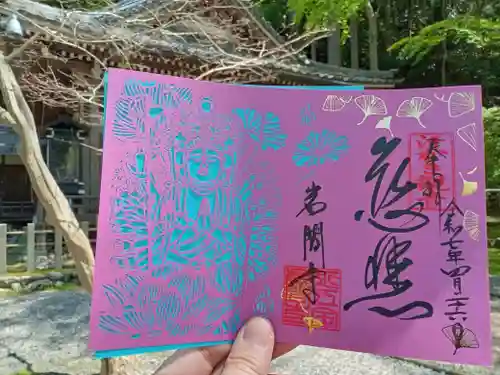 奉拝
令和七年四月二十六日
慈照
岩間寺